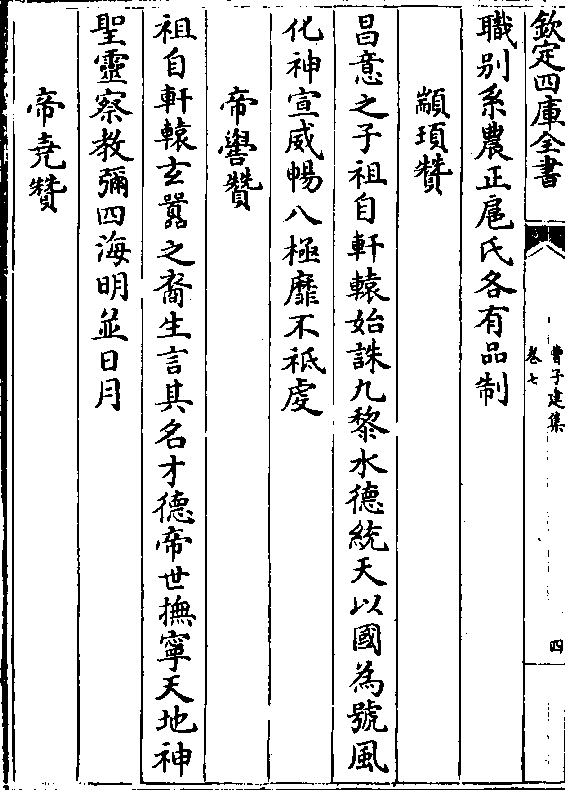 欽定四庫全書
曹子建集
卷七
四
職别系農正扈氏各有品制
顓頊贊
昌意之子祖自軒轅始誅九黎水德統天以國為號風
化神宣威暢八極靡不祗虔
帝嚳贊
祖自軒轅玄囂之裔生言其名才德帝世撫寧天地神
聖靈察教彌四海明並日月
帝堯贊